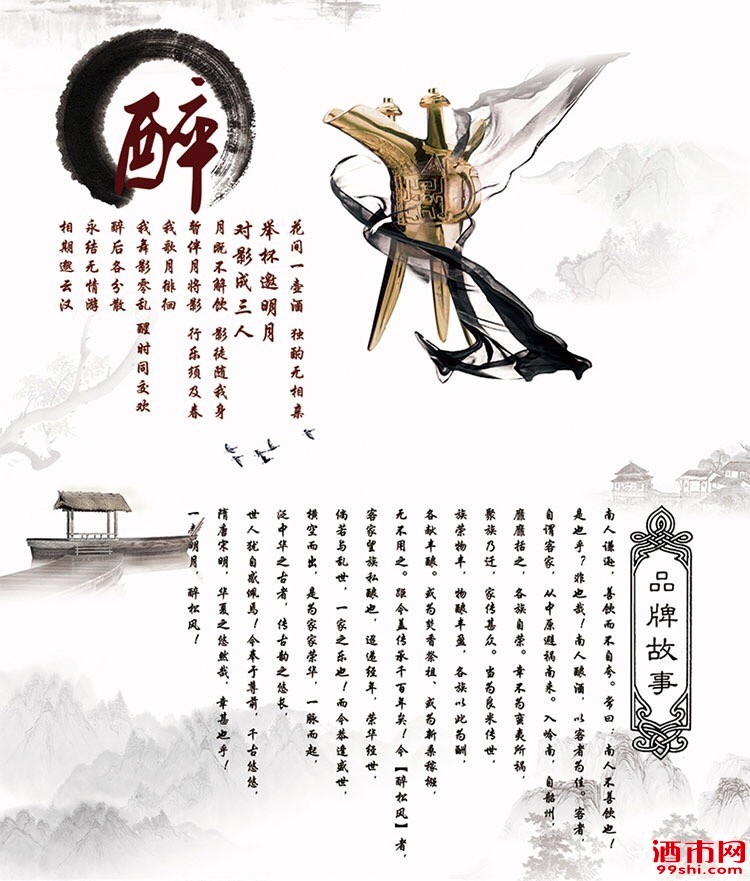 醉
花间一壶酒 独酌无相亲
举杯邀明月
对影成三人
月既不解饮 影徒随我身
暂伴月将影 行乐须及春
我歌月徘徊
我舞影零乱 醒时同交欢
醉后各分散
永结无情游
相期邈云汉
品牌故事
南人谦逊，善饮而不自夸。常曰：南人不善饮也！
是也乎？非也哉！南人酿酒，以客者为佳。客者，
自谓客家，从中原避祸南来。入岭南，自韶州，
麾麾括之，各族自荣。幸不为蛮夷所祸，
聚族乃迁，家传甚众。当为良米传世，
族荣物丰，物酿丰盈，各族以此为酬，
各献丰酿。或为焚香祭祖、或为新桑稼穑，
无不用之。距今盖传承千百年矣！今【醉松风】者，
客家望族私酿也，迢递经年，荣华经世，
倘若与乱世，一家之乐也！而今恭逢盛世，
横空而出，是为家家荣华，一脉而起，
泛中华之古者，传古韵之悠长，
世人犹自感佩焉！今奉于尊前，千古悠悠，
隋唐宋明，华夏之悠然哉，幸甚也乎！
一壶明月，醉松风！
酒市网
99shi.com